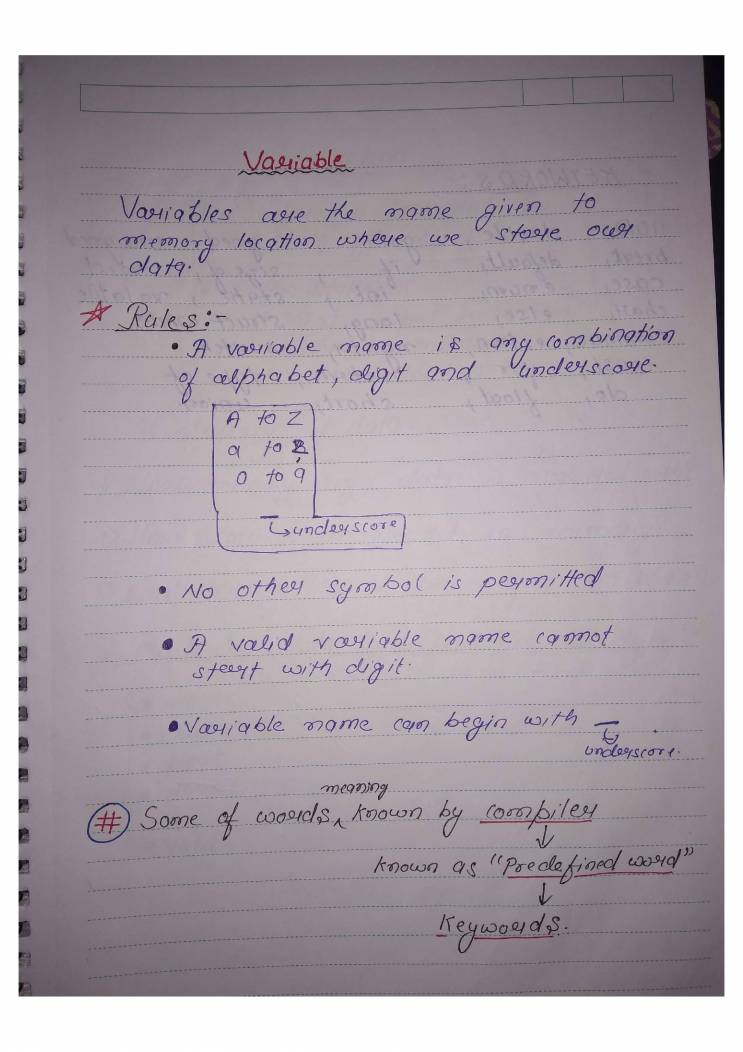 Variable
Variables are the name given to
memory location where we store our
data.
Rules:-
• A variable name is any combination
of alphabet, digit and underscore.
A to Z
a to z
0 to 9
_
↳underscore
• No other symbol is permitted
• A valid variable name cannot
start with digit.
• Variable name can begin with _ .
underscore.
meaning
# Some of words ^ known by compiler
↓
known as "Predefined word"
↓
Keywords.